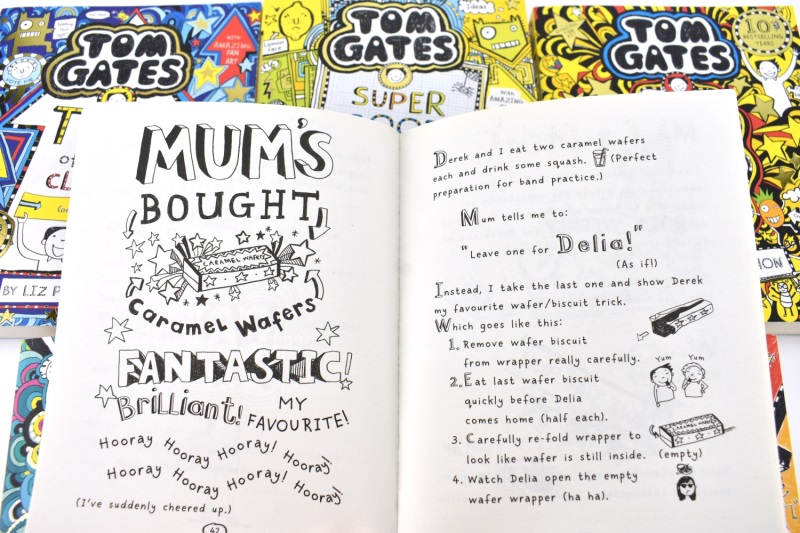 TOM
GATES
WITH
AMAZING
FAN
ART
BY LIZ P
TOM
GATES
SUPER
Ideas
With
AMAZING
TOM
GATES
10
BESTSELLING
YEARS!
MUM'S
BOUGHT
CARAMEL WAFERS
Caramel Wafers
FANTASTIC!
Brilliant! MY
FAVOURITE!
Hooray Hooray Hooray! Hooray!
Hooray Hooray Hooray! Hooray!
(I've suddenly cheered up.)
42
Derek and I eat two caramel wafers
each and drink some squash. (Perfect
preparation for band practice.)
Mum tells me to:
"Leave one for Delia!"
(As if!)
Instead, I take the last one and show Derek
my favourite wafer/biscuit trick.
Which goes like this:
1. Remove wafer biscuit
from wrapper really carefully.
2. Eat last wafer biscuit
quickly before Delia
comes home (half each).
Yum Yum
3. Carefully re-fold wrapper to
look like wafer is still inside. (empty)
CARAMEL WAFER
4. Watch Delia open the empty
wafer wrapper (ha ha).